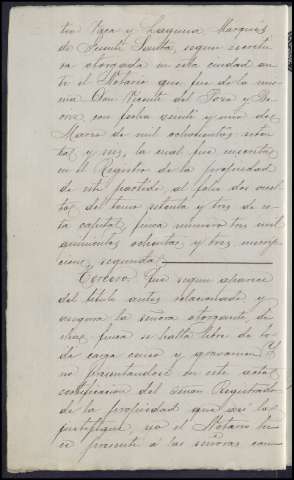 tin Vaca y Laguna Marqués
de Fuente Santa, segun escritu
ra otorgada en esta ciudad an
te el Notario que fué de la mis
ma Don Vicente del Toro y
con fecha veinte y uno de
Marzo de mil ochocientos seten
ta y seis, la cual fué inscrita
en el Registro de la propiedad
de este partido al folio dos cien
tos del tomo setenta y tres de es
ta capital, finca numero tres mil
quinientos ochenta y tres inscrip
cion segunda.
Tercero. Que segun aparece
del titulo antes relacionado y
asegura la señora otorgante di
cha finca se halla libre de to
da carga censo y gravamen. Y
no presentandose en este acto
certificacion del Señor Registrador
de la propiedad que asi lo
justifique, yo el Notario hi
ce presente á las señoras com